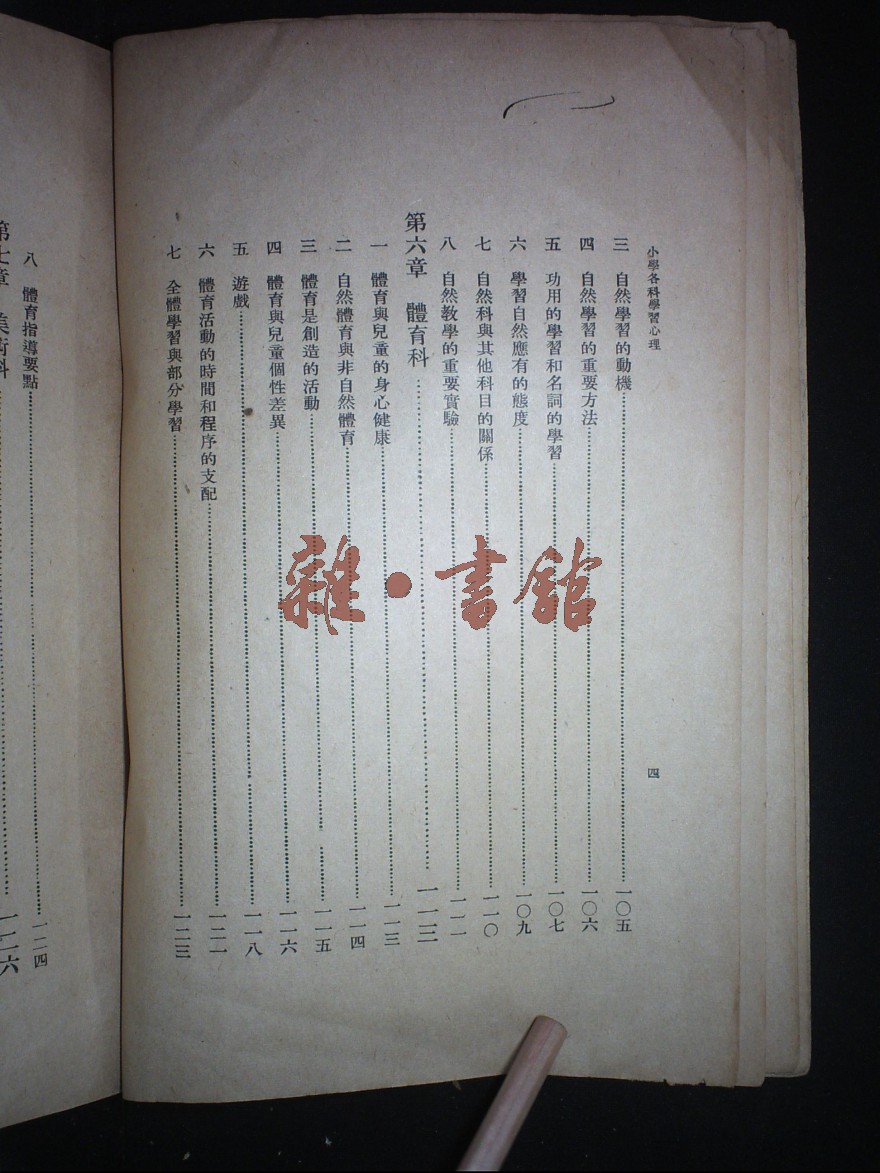 小學各科學習心理
四
三 自然學習的動機……一〇五
四 自然學習的重要方法……一〇六
五 功用的學習和名詞的學習……一〇七
六 學習自然應有的態度……一〇九
七 自然科與其他科目的關係……一一〇
八 自然教學的重要實驗……一一一
第六章 體育科……一一三
一 體育與兒童的身心健康……一一三
二 自然體育與非自然體育……一一四
三 體育是創造的活動……一一五
四 體育與兒童個性差異……一一六
五 遊戲……一一八
六 體育活動的時間和程序的支配……一二一
七 全體學習與部分學習……一二三
八 體育指導要點……一二四
第七章 美術科……一二六
雜·書館